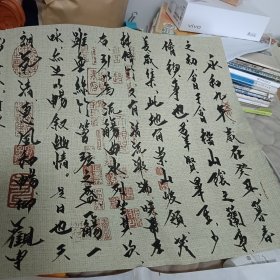 永和九年歲在癸丑暮春
之初會于會稽山陰之蘭亭
脩稧事也羣賢畢至少
長咸集此地有崇山峻領茂
林脩竹又有清流激湍映帶左
右引以為流觴曲水列坐其次
雖無絲竹管弦之盛一觴一
詠亦足以暢敘幽情是日也天
朗氣清惠風和暢仰觀宇
vivo